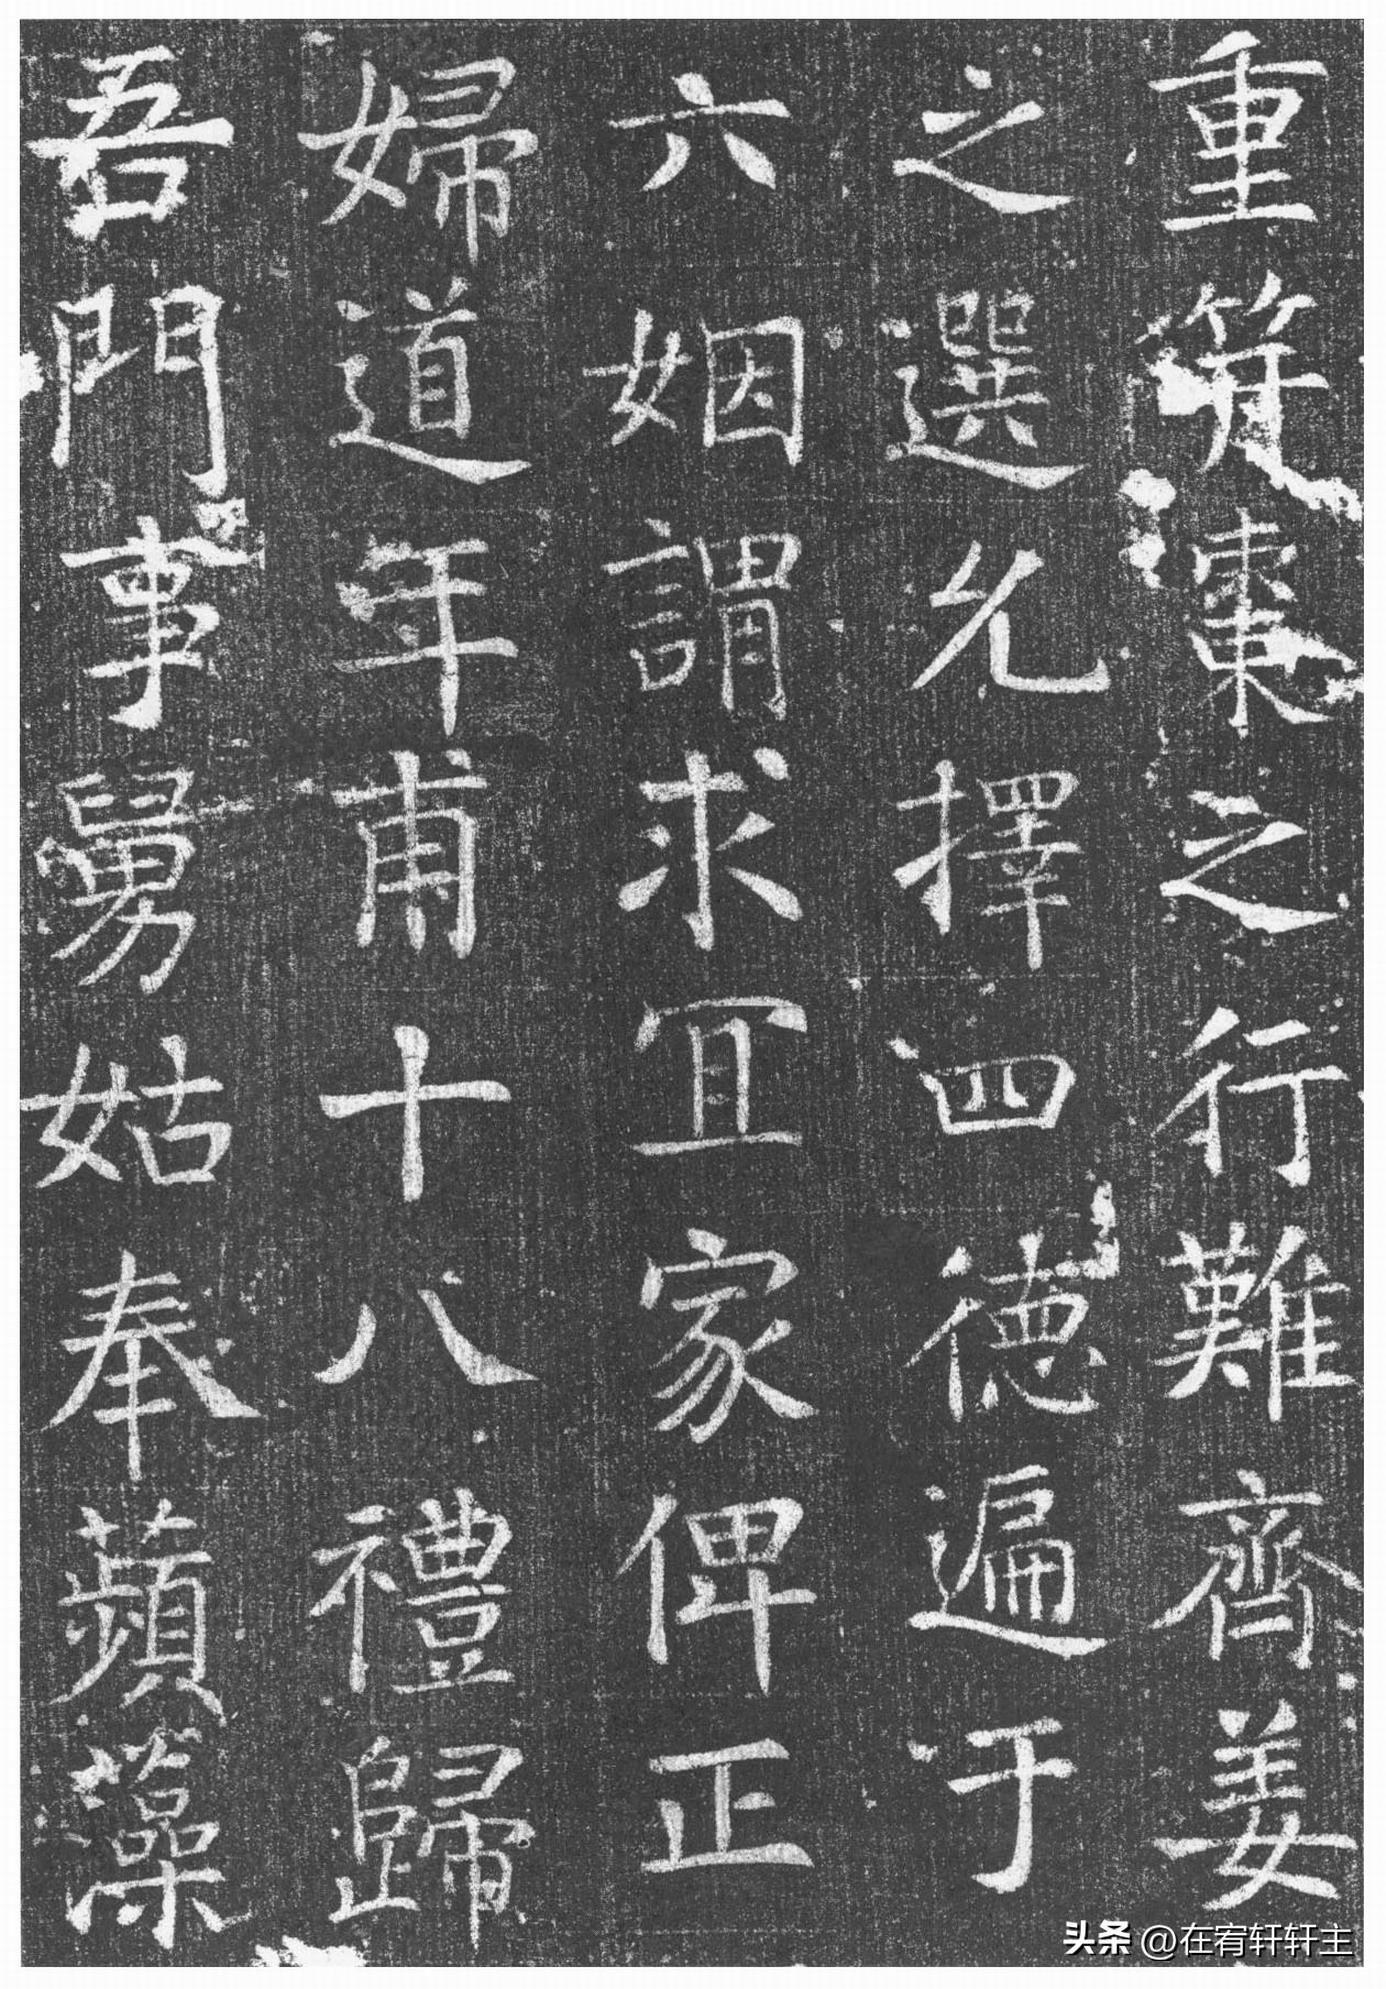 重笄棗之行難齊姜
之選允擇四德遍于
六姻謂求冝家俾正
婦道年甫十八禮歸
吾門事舅姑奉蘋藻
头条 @在宥轩轩主